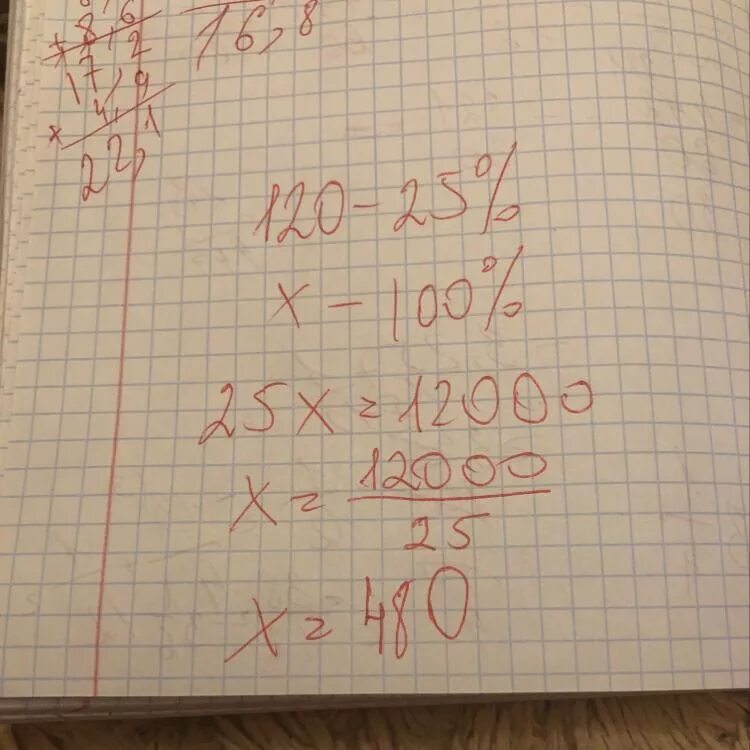 8,6
17,2
4,9
22,1
16,8
120 – 25%
x – 100%
25x = 12000
x = 12000
25
x = 480